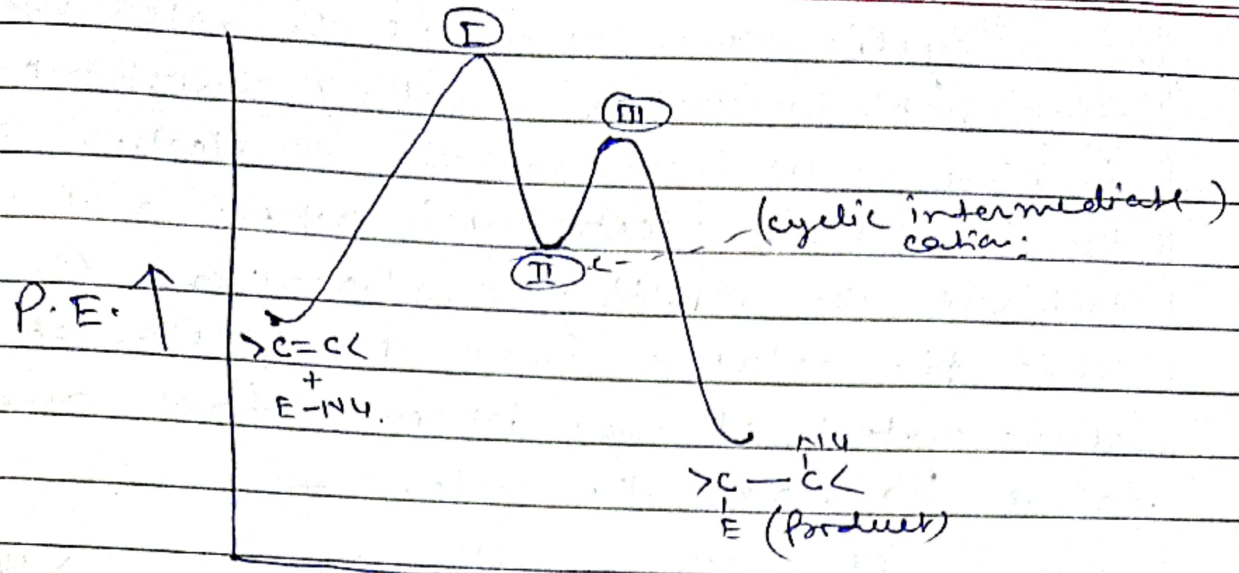 I
III
(cyclic intermediate)
cation.
II
P.E. ↑
>C=C<
+
E-NU.
NU
>C — C<
E (Product)